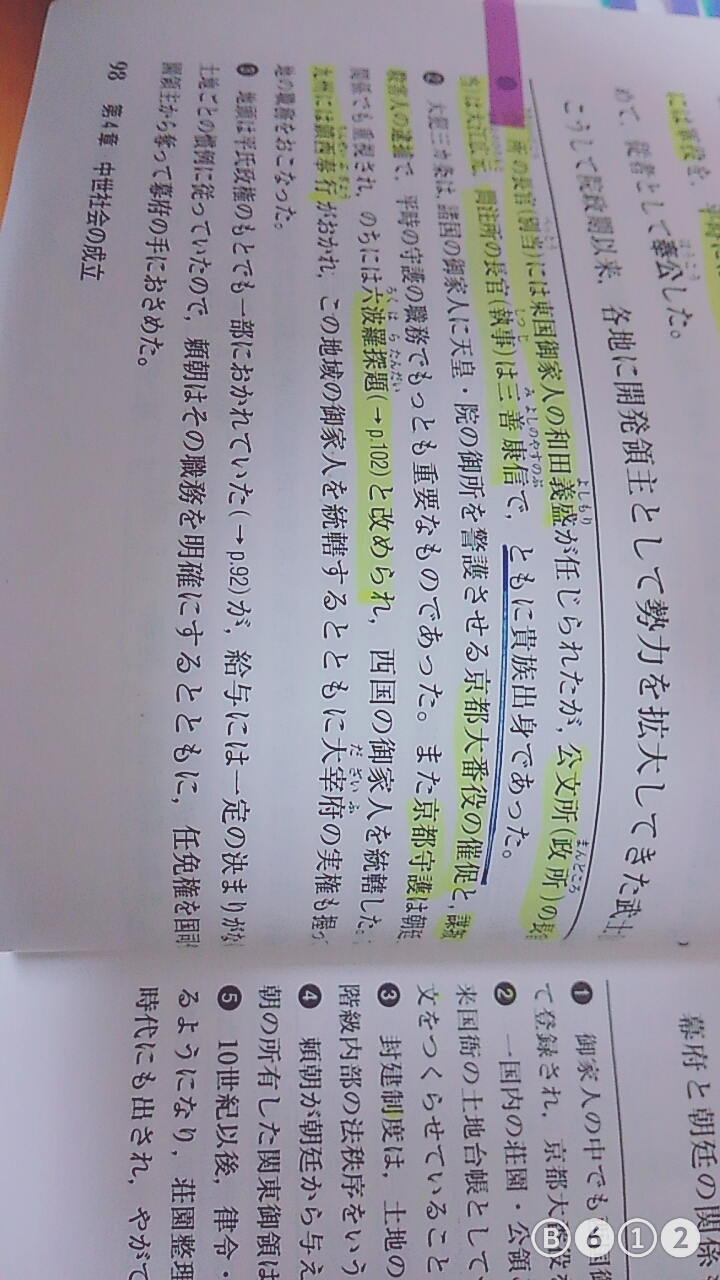 には軍役を、平時に
めて、従者として奉公した。
ほうこう
こうして院政期以来、各地に開発領主として勢力を拡大してきた武士
所の長官(別当)には東国御家人の和田義盛が任じられたが、公文所(政所)の長
べっとう
よしもり
まんどころ
官)は大江広元、問注所の長官(執事)は三善康信で、ともに貴族出身であった。
しつじ
みよしのやすのぶ
❷ 大犯三カ条は、諸国の御家人に天皇・院の御所を警護させる京都大番役の催促と、謀叛
殺害人の逮捕で、平時の守護の職務でもっとも重要なものであった。また京都守護は朝廷
関係でも重視され、のちには六波羅探題(→p.102)と改められ、西国の御家人を統轄した。
ろくはらたんだい
九州には鎮西奉行がおかれ、この地域の御家人を統轄するとともに大宰府の実権も握っ
ちんぜいぶぎょう
だざいふ
地の職務をおこなった。
❸ 地頭は平氏政権のもとでも一部におかれていた(→p.92)が、給与には一定の決まりがな
土地ごとの慣例に従っていたので、頼朝はその職務を明確にするとともに、任免権を国司
園領主から奪って幕府の手におさめた。
98 第4章 中世社会の成立
幕府と朝廷の関係
❶ 御家人の中でも
て登録され、京都大番役
❷ 一国内の荘園・公領
来国衙の土地台帳として
文をつくらせていること
❸ 封建制度は、土地の
階級内部の法秩序をいう
❹ 頼朝が朝廷から与え
朝の所有した関東御領は
❺ 10世紀以後、律令・
るようになり、荘園整理
時代にも出され、やがて
B 6 1 2